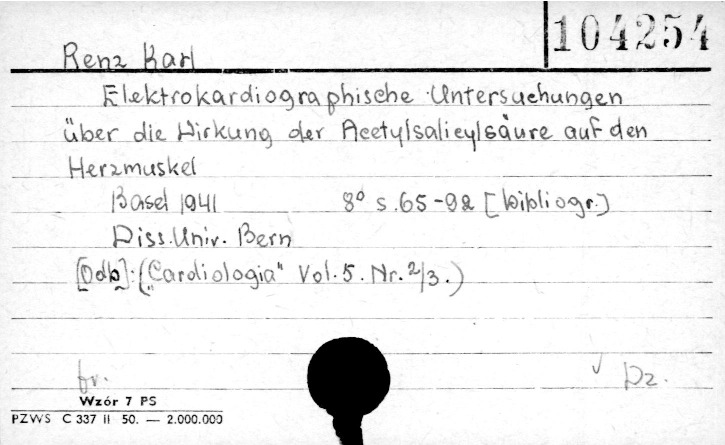 104254
Renz Karl
Elektrokardiographische Untersuchungen
über die Wirkung der Acetylsalicylsäure auf den
Herzmuskel
Basel 1941 8° s. 65-92 [bibliogr.]
Diss. Univ. Bern
[Odb]: („Cardiologia" Vol. 5. Nr. 2/3.)
fr. Dz.
Wzór 7 PS
PZWS C 337 II 50. — 2.000.000